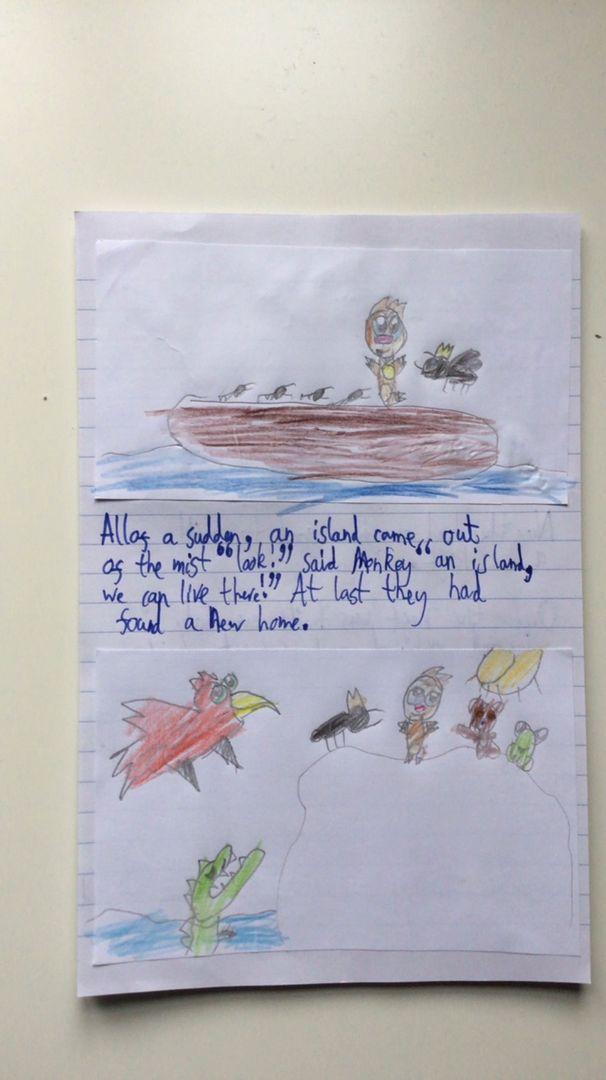 Allof a sudden, an island came out
of the mist "look!" said Monkey "an island,
we can live there!" At last they had
found a new home.